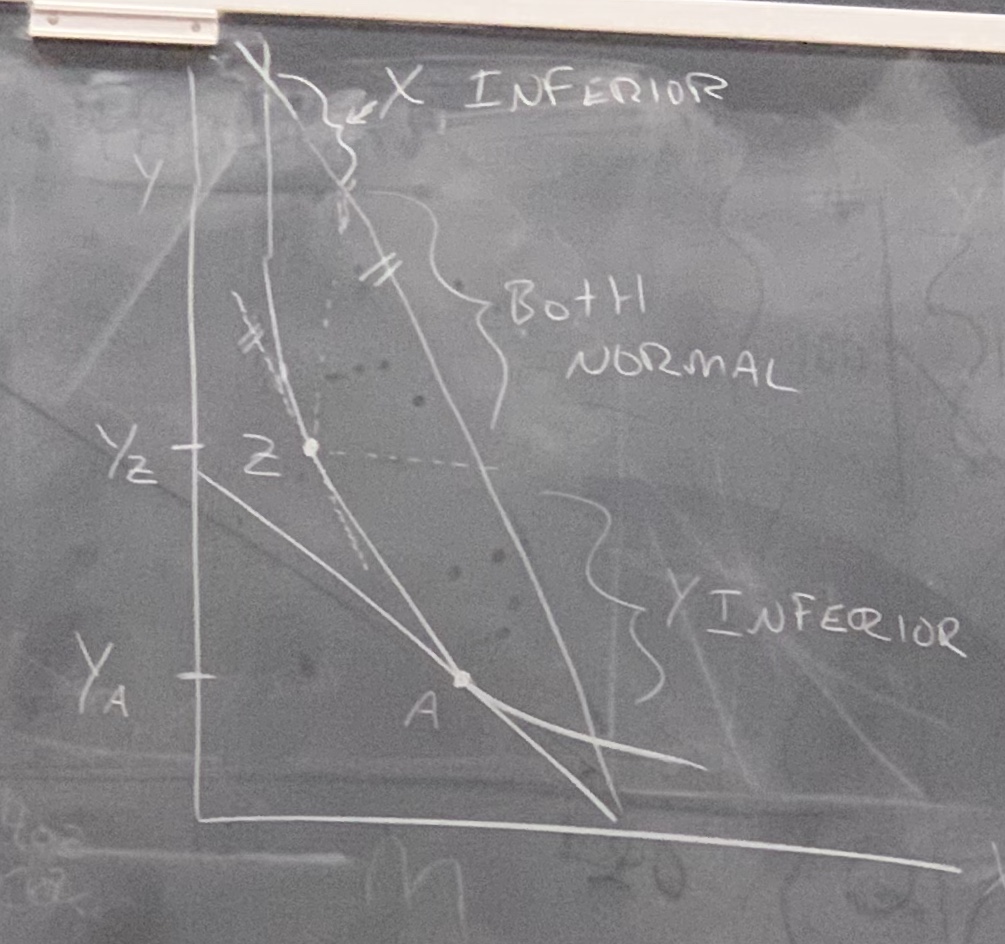 X INFERIOR
Y
BOTH
NORMAL
Y_Z
Z
Y INFERIOR
Y_A
A
X